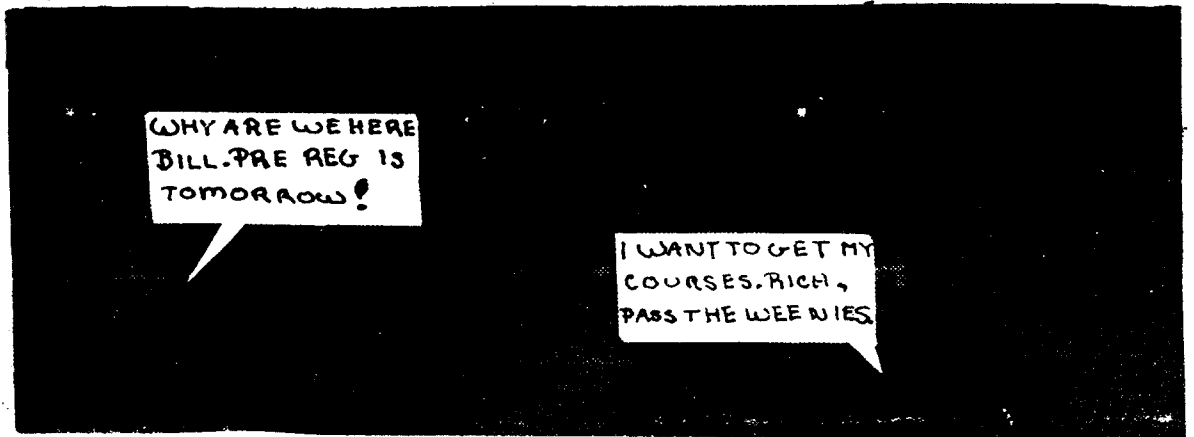 WHY ARE WE HERE
BILL. PRE REG IS
TOMORROW!
I WANT TO GET MY
COURSES. RICH,
PASS THE WEENIES.